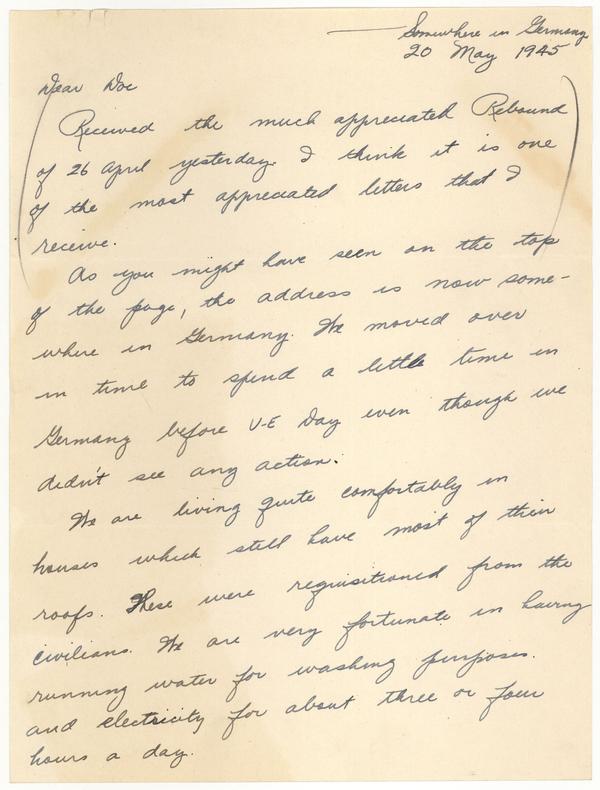 Somewhere in Germany
20 May 1945
Dear Doc
Received the much appreciated Rebound
of 26 April yesterday. I think it is one
of the most appreciated letters that I
receive.
As you might have seen on the top
of the page, the address is now some-
where in Germany. We moved over
in time to spend a little time in
Germany before V-E Day even though we
didn't see any action.
We are living quite comfortably in
houses which still have most of their
roofs. These were requisitioned from the
civilians. We are very fortunate in having
running water for washing purposes.
and electricity for about three or four
hours a day.